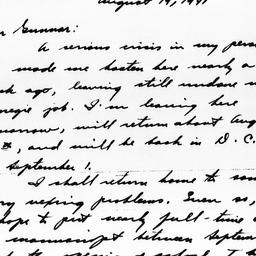 August 19, 1941
Gunnar:
A serious crisis in my pers
made me hasten here nearly a
ago, leaving still undone
negie job. I'm leaving here
morrow, will return about Aug
, and will be back in D.C.
September 1.
I shall return home to some
vexing problems. Even so,
hope to put nearly full-time
manuscript between Septem